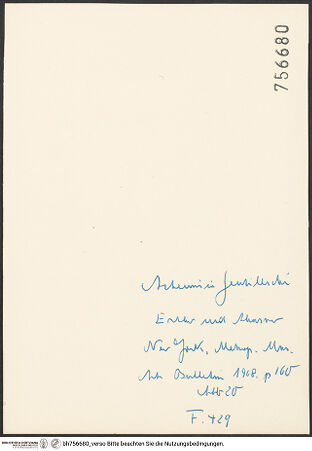 756680
Artemisia Gentileschi
Esther und Ahasver
New York, Metrop. Mus.
Art Bulletin 1968. p 165
Abb 20
F. 429
bh756680_verso Bitte beachten Sie die Nutzungsbedingungen.